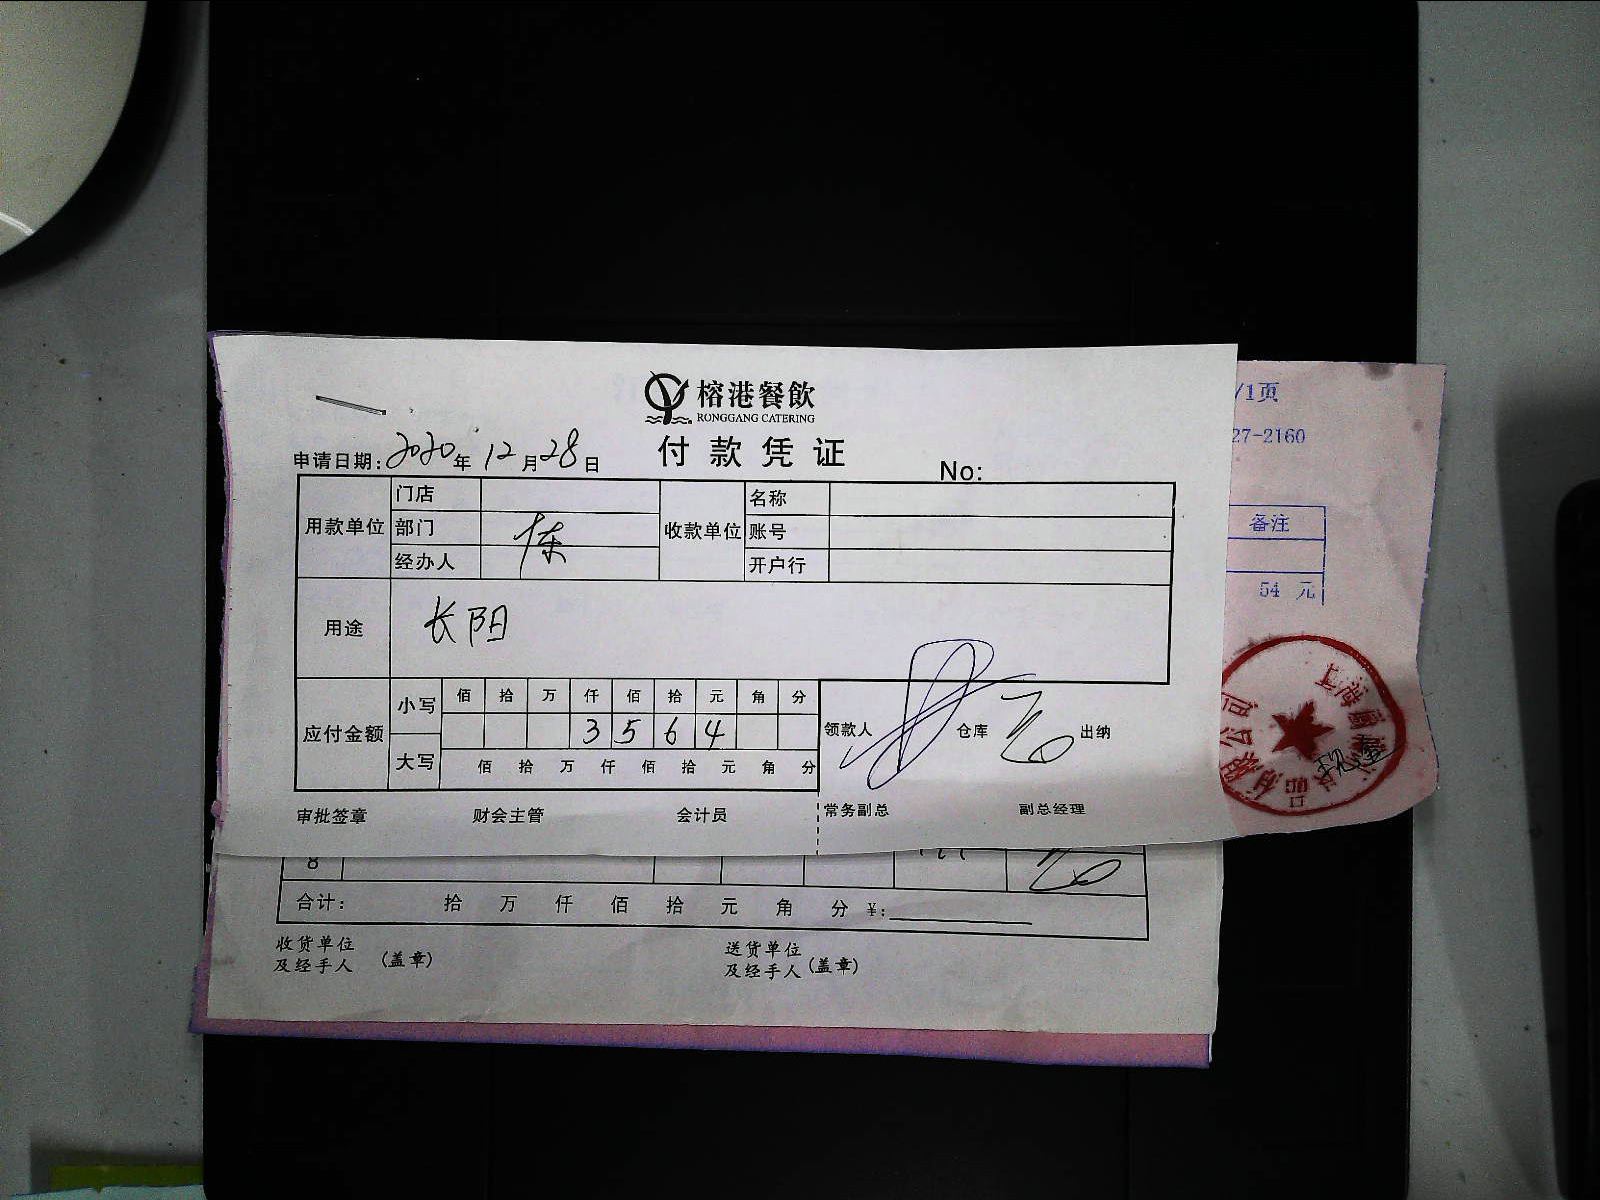 榕港餐飲
RONGGANG CATERING
付款凭证
申请日期: 2020年12月28日
No:
用款单位 门店 收款单位 名称
部门 账号
经办人 开户行
用途 长阳
应付金额 小写 佰 拾 万 仟 佰 拾 元 角 分
3 5 6 4
大写 佰 拾 万 仟 佰 拾 元 角 分
领款人 仓库 出纳
审批签章 财会主管 会计员 常务副总 副总经理
8
合计: 拾 万 仟 佰 拾 元 角 分 ¥:
收货单位
及经手人 (盖章)
送货单位
及经手人 (盖章)
/1页
27-2160
备注
54 元